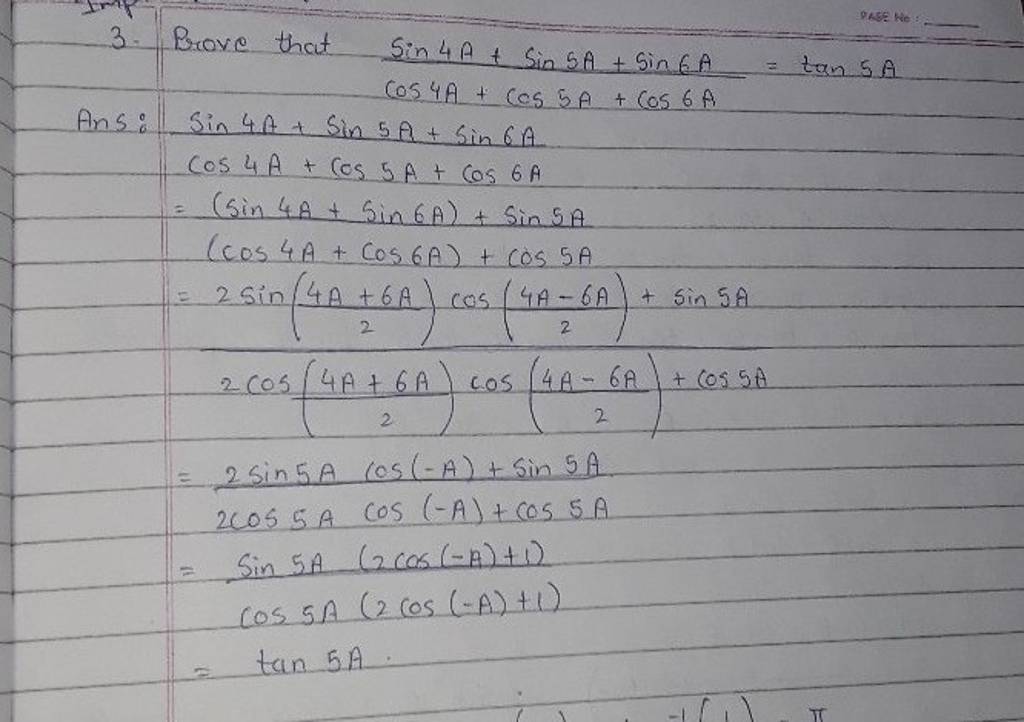 Imp
PAGE No :
3. Prove that Sin 4A + Sin 5A + Sin 6A = tan 5A
cos 4A + cos 5A + cos 6A
Ans: Sin 4A + Sin 5A + Sin 6A
cos 4A + cos 5A + cos 6A
= (Sin 4A + Sin 6A) + Sin 5A
(cos 4A + cos 6A) + cos 5A
= 2 sin (4A + 6A) cos (4A - 6A) + sin 5A
2 2
2 cos (4A + 6A) cos (4A - 6A) + cos 5A
2 2
= 2 sin 5A cos (-A) + sin 5A
2cos 5A cos (-A) + cos 5A
= Sin 5A (2 cos (-A) + 1)
cos 5A (2 cos (-A) + 1)
= tan 5A .